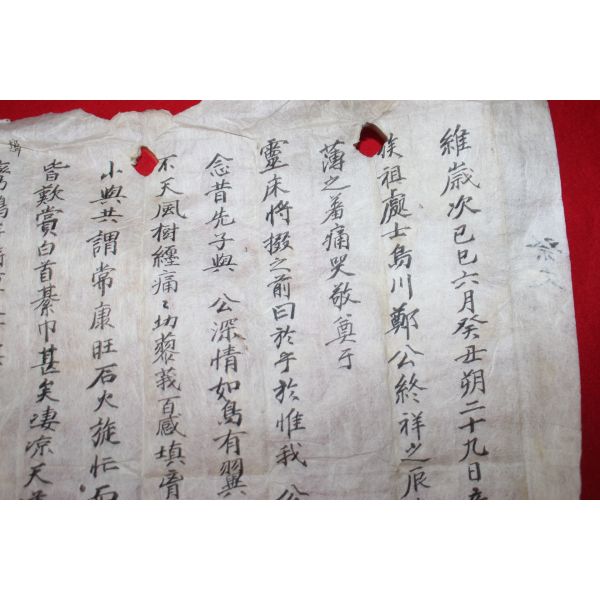 維歲次己巳六月癸丑朔二十九日
族祖處士烏川鄭公終祥之辰
薄之着痛哭敬奠于
靈床將掇之前曰於乎於惟我 公
念昔先子與 公深情如鳥有翼
不天風樹經痛〻切蓼莪百感填膺
小與共謂常康旺石火旋忙
皆歎賞白首綦巾甚矣凄凉天